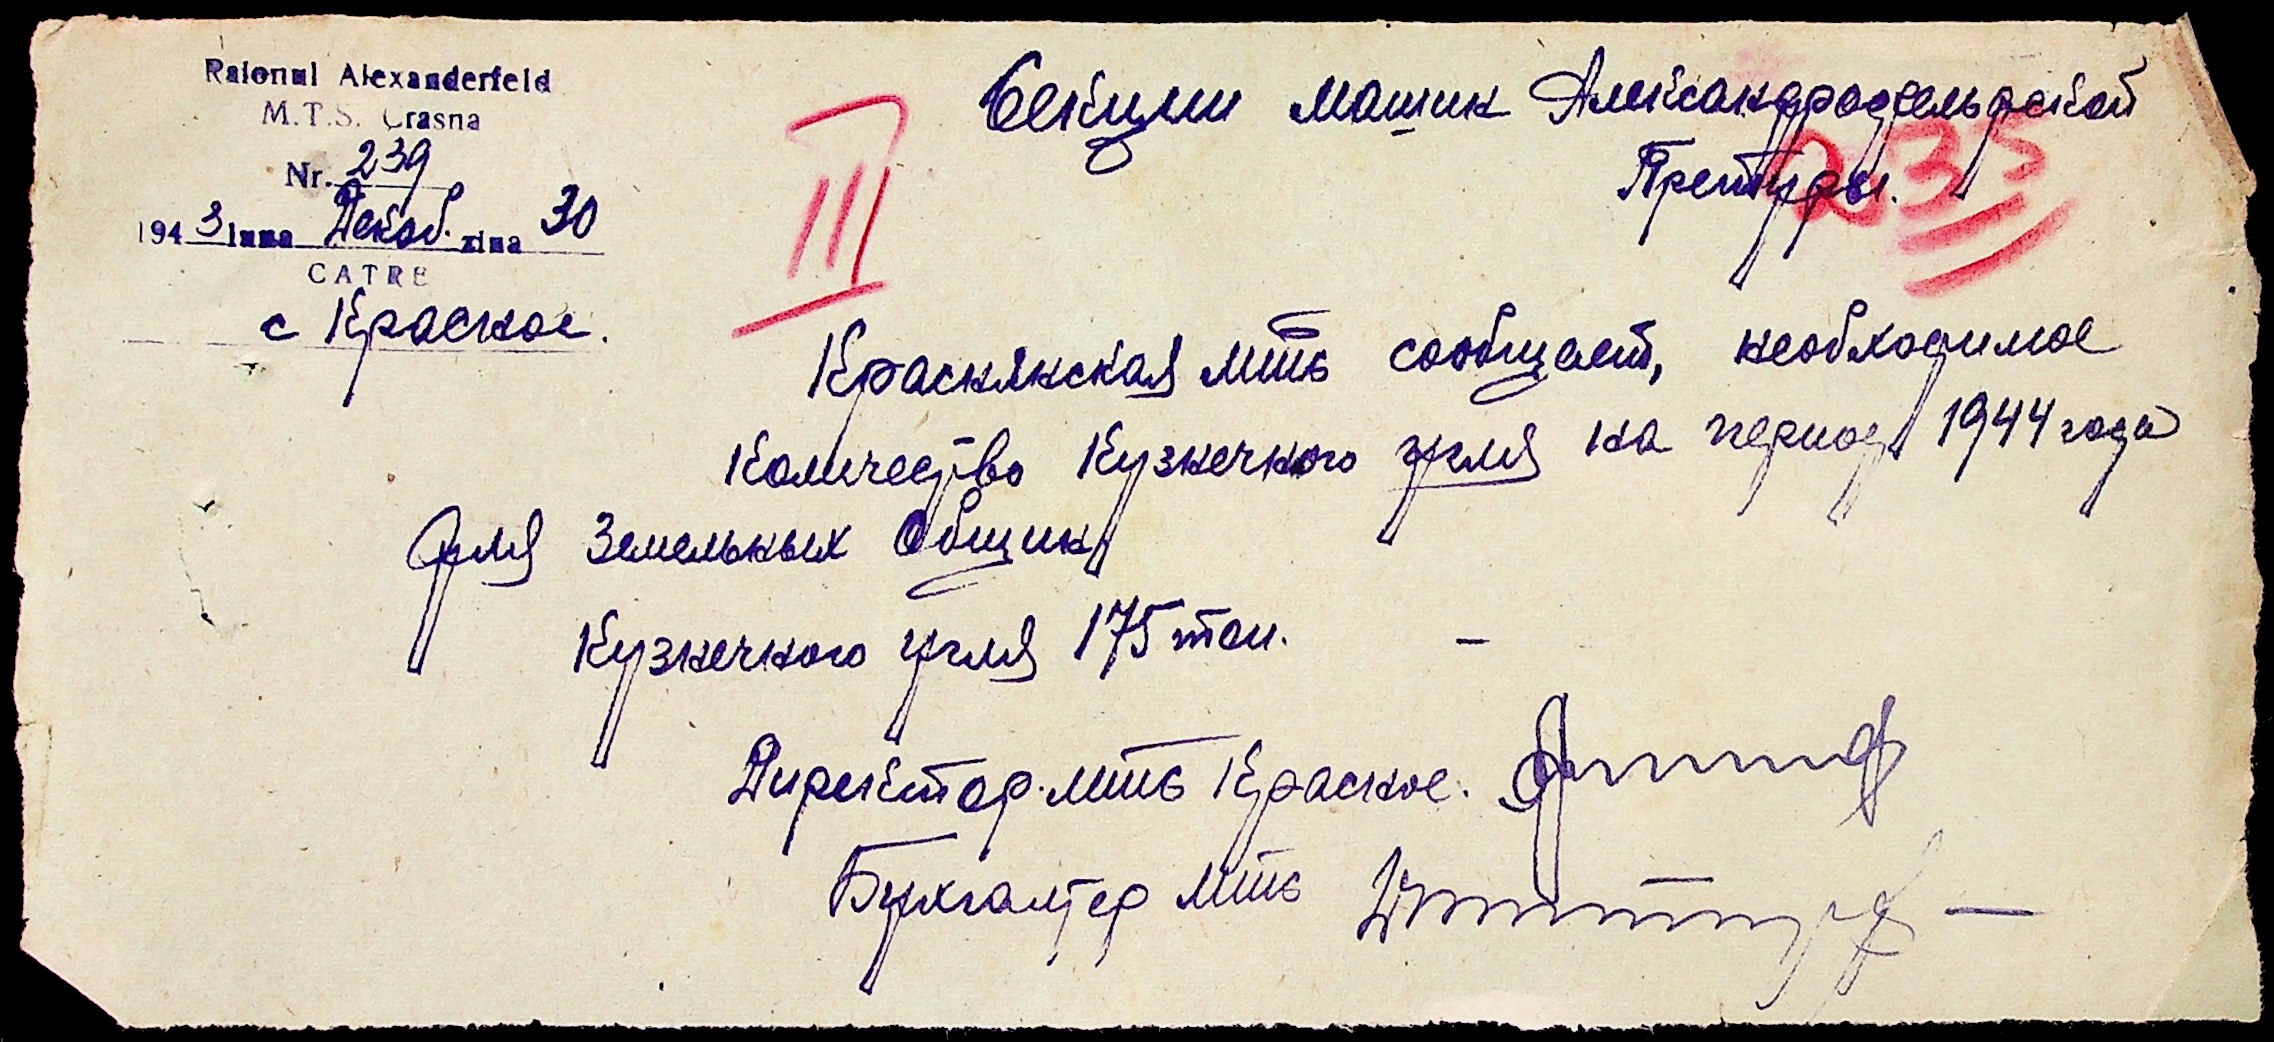 Raionul Alexanderfeld
M.T.S. Crasna
Nr. 239
1943 luna Декаб. ziua 30
CATRE
с Красное.
III
Секции машин Александрфельдской
Претуры.
235
Краснянская мтс сообщает, необходимое
Количество Кузнечного угля на период 1944 года
для Земельных Общин
Кузнечного угля 175 тон. –
Директор. мтс Красное.
Бухгалтер мтс